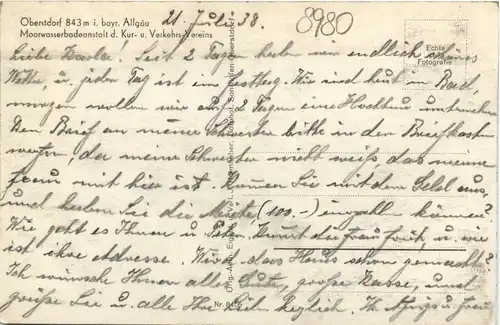 Oberstdorf 843 m i. bayr. Allgäu
Moorwasserbadeanstalt d. Kur- u. Verkehrs-Vereins
21. Juli 38.
8980
Echte
Fotografie
Liebe! Seit 2 Tagen haben wir endlich schönes
Wetter, u. jeder Tag ist ein Festtag. Wir sind heut im Bad,
morgen wollen wir auf 2 Tagen eine Hochtour unternehmen
Den Brief an meine Schwester bitte in den Briefkasten
werfen, da meine Schwester nicht weiß, das meine
Frau mit hier ist. Kommen Sie mit dem Geld aus,
und haben Sie die Miete (100.-) einzahle können?
Wie geht es Ihnen u. Kommt die Frau früh u. wie
ist ihre Adresse. Wird das Haus schon gemacht?
Ich wünsche Ihnen alles Gute, große Kasse, und
grüße Sie u. alle Ihre herzlich. Ihr u. Frau
Nr. 84